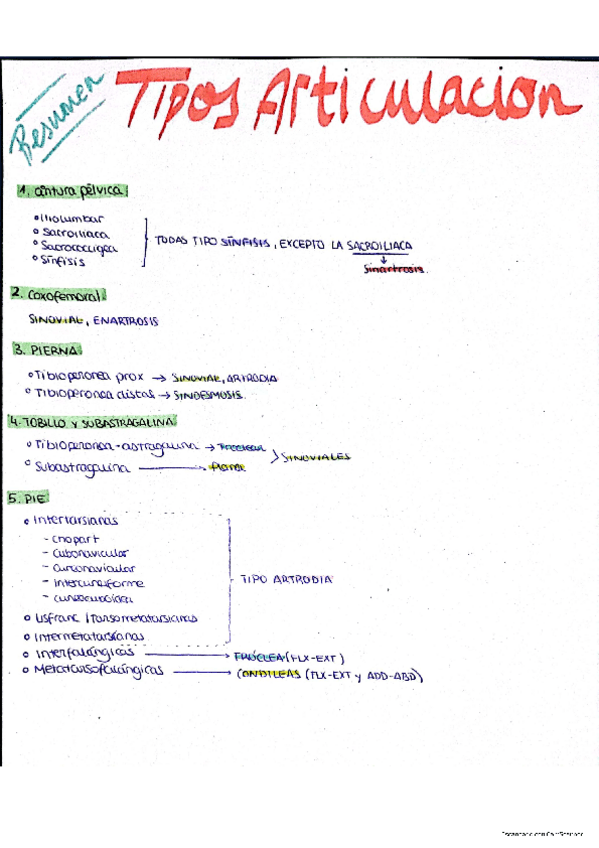 Resumen
TIPOS ArticulacioN
1. cintura pélvica
Iliolumbar
Sacroiliaca
Sacrococcígea
Sínfisis
TODAS TIPO SÍNFISIS, EXCEPTO LA SACROILIACA
Sinartrosis.
2. Coxofemoral.
SINOVIAL, ENARTROSIS
3. PIERNA
Tibioperonea prox → SINOVIAL, ARTRODIA
Tibioperonea distal → SINDESMOSIS.
4. TOBILLO y SUBASTRAGALINA
Tibioperonea-astragalina → Troclear
Subastragalina → Plana.
SINOVIALES
5. PIE
Intertarsianas
- Chopart
- Cubonavicular
- Cuneonavicular
- Intercuneiforme
- cuneocuboidea
TIPO ARTRODIA
Lisfranc / Tarsometatarsianas
Intermetatarsianas
Interfalángicas → TRÓCLEA (FLX-EXT)
Metatarsofalángicas → CONDILEAS (FLX-EXT y ADD-ABD)
Escaneado con CamScanner